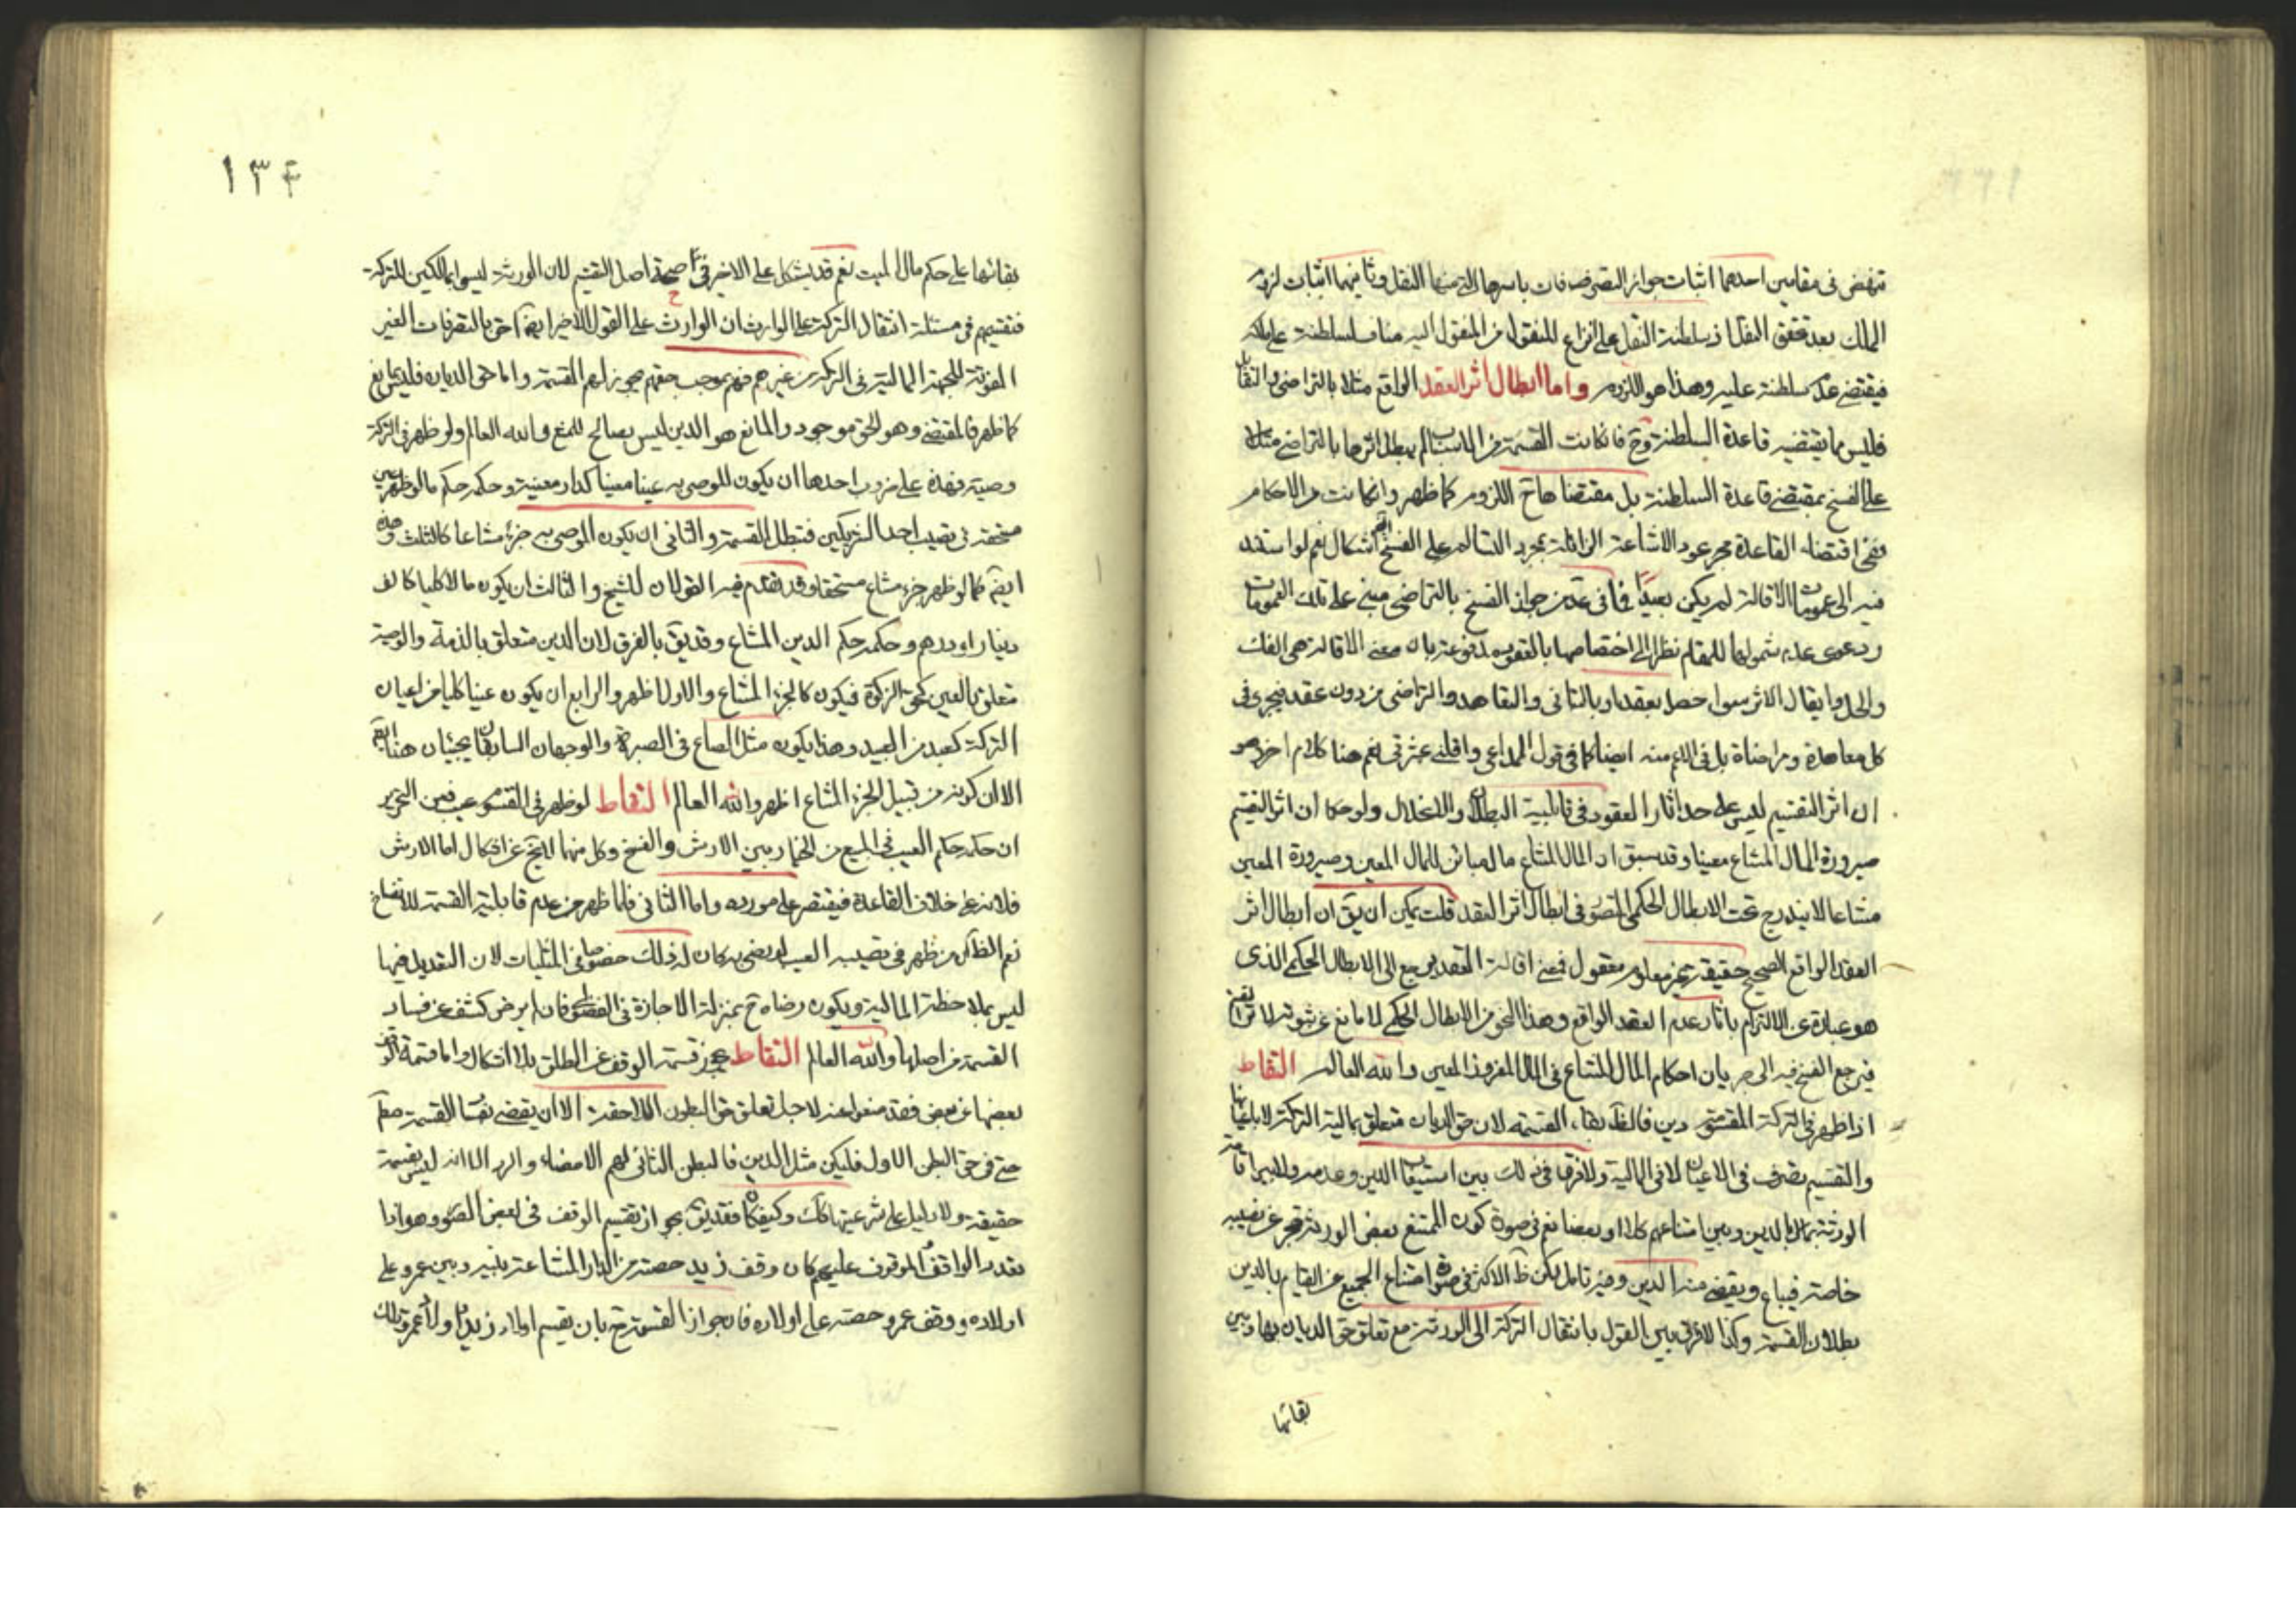 تنهض في مقامين احدهما اثبات جواز التصرفات باسرها التي منها النقل وثانيهما اثبات لزوم
الملك بعد تحقق النقل اذ سلطنة النقل على انزاع للمنقول من المنقول اليه مناف لسلطنة على ماله
فيقتضي عدم سلطنة عليه وهذا هو اللزوم واما ابطال اثر العقد الواقع مثلا بالتراضي والتقايل
فليس مما يقتضيه قاعدة السلطنة وح فان كانت القسمة من الاسباب لم يبطل اثرها بالتراضي مثلا
على الفسخ بمقتضى قاعدة السلطنة بل مقتضاها ح اللزوم كما ظهر وان كانت من الاحكام
ففي اقتضاء القاعدة مجرعود الاشاعة الزائلة بمجرد التسالم على الفسخ ايضا اشكال نعم لو استند
فيه الى عمومات الاقالة لم يكن بعيدا فانى عدم من جواز الفسخ بالتراضي مبني على تلك العمومات
ودعوى عدم شمولها للمقام نظرا الى اختصاصها بالعقود مدفوعة بان معنى الاقالة هي الفك
والحل وايقال الاثر سواء حصل بعقد او بالتبانى والتعاهد والتراضي من دون عقد فيجري في
كل معاهدة ومراضاة بل في الاعم منه ايضا كما في قول الداعي واقلني عثرتي نعم هنا كلام اخر وهو
ان اثر التقسيم ليس على حد اثار العقود في قابلية البطلان والانحلال ولو حكما اذ اثر التقسيم
صيرورة المال المشاع معينا وقد سبق ان المال المشاع مال مبائن للمال المعين وصيرورة المعين
مشاعا لا يندرج تحت الابطال الحكمي المتصور في ابطال اثر العقد قلت يمكن ان يق ان ابطال اثر
العقد الواقع الصحيح حقيقة غير معلوم معقول فمعنى اقالة العقد يرجع الى الابطال الحكمي الذي
هو عبارة عن الالتزام باثار عدم العقد الواقع وهذا النحو من الابطال الحكمي لا مانع عن ثبوته لاثر التقسيم
فيرجع الفسخ فيه الى جريان احكام المال المشاع في المال المفروز المعين والله العالم التقاط
اذا ظهر في التركة المقسومة دين فالظ بقاء القسمة لان حق الديان متعلق بمالية التركة لا باعيانها
والتقسيم تصرف في الاعيان لا في المالية ولا فرق في ذلك بين استيعاب الدين وعدمه ولا بين اقامة
الورثة بمال الدين وبين امتناعهم كلا او بعضا نعم في صورة كون الممتنع بعض الورثة فيجر عن نصيبه
خاصة فيباع ويقضى منه الدين وفيه تامل لكن ظ الاكثر في صورة امتناع الجميع عن القيام بالدين
بطلان القسمة وكذا لا فرق بين القول بانتقال التركة الى الورثة مع تعلق حق الديان بها وبين
بقائها
١٣٤
بقائها على حكم مال الميت نعم قد يشكل على الاخير في صحة اصل التقسيم لان الورثة ليسوا بمالكين للتركة
فتقسيمهم في مسئلة انتقال التركة على الوارث ان الوارث على القول الاخير ايضا احق بالتصرفات الغير
المفوتة للجهة المالية في التركة من غيرهم فهم بموجب حقهم يجوز لهم القسمة واما حق الديان فليس بمانع
كما ظهر فالمقتضي وهو الحق موجود والمانع هو الدين ليس بصالح للمنع والله العالم ولو ظهر في التركة
وصية فهذه على ضروب احدها ان يكون للموصى به عينا معينا كدار معينة وحكمه حكم ما لو ظهر عين
مستحقة في نصيب احد الشريكين فتبطل القسمة والثاني ان يكون الموصى به جزء مشاعا كالثلث وهذه
ايضا كما لو ظهر جزء مشاع مستحقا وقد تقدم فيه القولان للشيخ والثالث ان يكون مالا كليا كالف
دينار او درهم وحكمه حكم الدين المشاع وقد يق بالفرق لان الدين متعلق بالذمة والوصية
متعلق بالعين كحق الزكوة فيكون كالجزء المشاع والاول اظهر والرابع ان يكون عينا كليا من اعيان
التركة كعبد من العبيد وهذا يكون مثل الصاع في الصبرة والوجهان السابقان يجيئان هنا ايضا
الا ان كونه من قبيل الجزء المشاع اظهر والله العالم التقاط لو ظهر في المقسوم عيب فعن التحرير
ان حكمه حكم العيب في المبيع من الخيار بين الارش والفسخ وكل منهما لا يخ عن اشكال اما الارش
فلانه على خلاف القاعدة فيقتصر على مورده واما الثاني فلما ظهر من عدم قابلية القسمة للانفساخ
نعم الظ ان من ظهر في نصيبه العيب لو رضي به كان له ذلك خصوصا في المثليات لان التعديل فيها
ليس بملاحظة المالية ويكون رضاه ح بمنزلة الاجازة في الفضولي فان لم يرض كشف عن فساد
القسمة من اصلها والله العالم التقاط يجوز قسمة الوقف عن الطلق بلا اشكال واما قسمة الوقف
بعضها عن بعض فقد منعوا عنه لاجل تعلق حق البطون اللاحقة الا ان يقضى نفسا القسمة مط
حتى في حق البطن الاول فليكن مثل الدين فالبطن الثاني لهم الامضاء والرد الا انه ليس بقسمة
حقيقة ولا دليل على شرعيتها كك وكيف كان فقد يق بجواز تقسيم الوقف في بعض الصور وهو اذا
تعدد الواقف والموقوف عليهم كان وقف زيد حصته من الدار المشاعة بينه وبين عمرو على
اولاده ووقف عمرو حصته على اولاده فان جواز القسمة ح بان يقسم اولاد زيد واولاد عمرو تلك